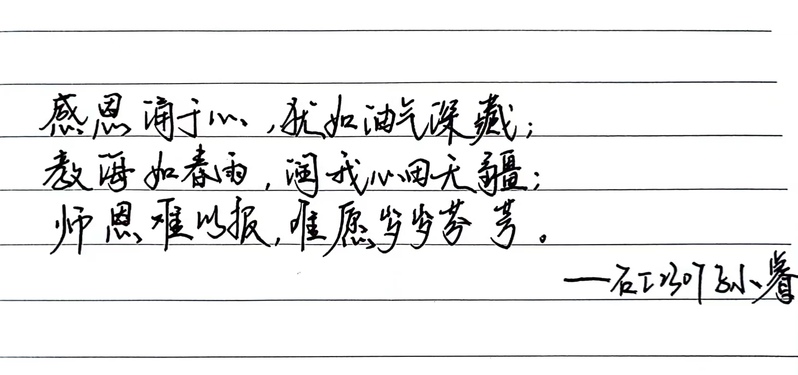 感恩涌于心，犹如油气深藏；
教诲如春雨，润我心田无疆；
师恩难以报，唯愿岁岁芬芳。
——石工2307 孙小睿